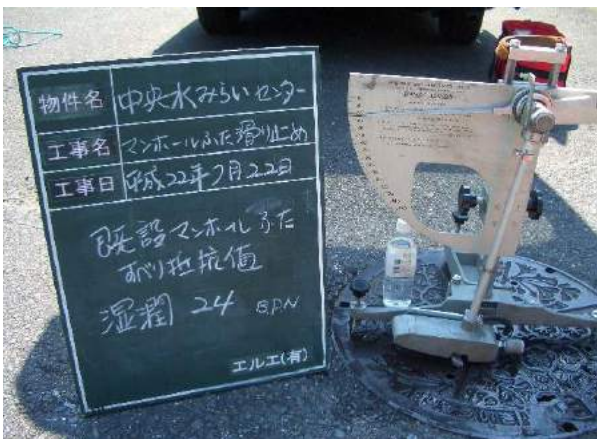 物件名 中央水みらいセンター
工事名 マンホールふた滑り止め
工事日 平成22年7月22日
既設マンホールふた
すべり抵抗値
湿潤 24 B.P.N
エルエ(有)